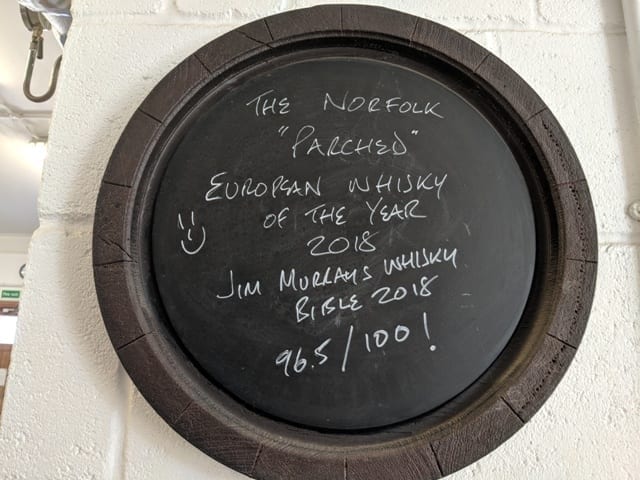 THE NORFOLK
"PARCHED"
EUROPEAN WHISKY
OF THE YEAR
2018
JIM MURRAYS WHISKY
BIBLE 2018
96.5/100!